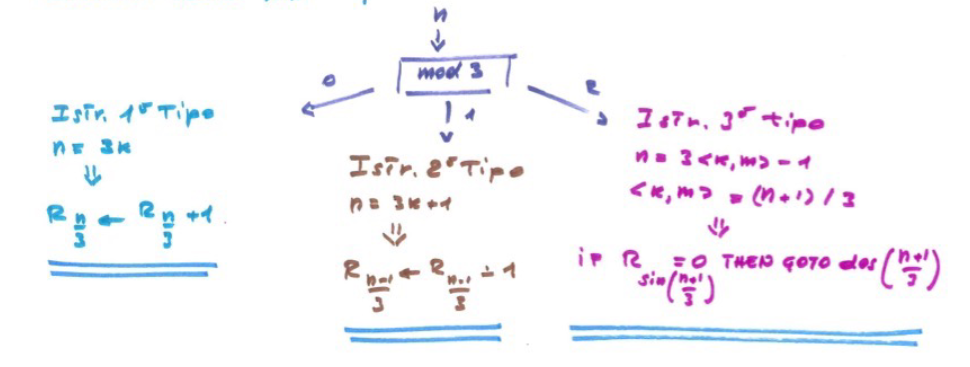 n
⇓
mod 3
0
1
2
Istr. 1° Tipo
n = 3k
⇓
R_{n/3} ← R_{n/3} + 1
Istr. 2° Tipo
n = 3k+1
⇓
R_{(n-1)/3} ← R_{(n-1)/3} ∸ 1
Istr. 3° tipo
n = 3<k,m> - 1
<k,m> = (n+1) / 3
⇓
iF R_{sin((n+1)/3)} = 0 THEN GOTO des((n+1)/3)